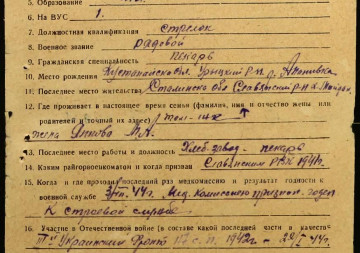 5. Образование
6. На ВУС 1.
7. Должностная квалификация стрелок
8. Военное звание рядовой
9. Гражданская специальность пекарь
10. Место рождения Кустанайской обл. Урицкий р-н
11. Последнее место жительства Сталинско обл Славянский р-н
12. Где проживает в настоящее время семья (фамилия, имя и отчество жены или
родителей и точный их адрес)
жена М.А.
13. Последнее место работы и должность Хлеб-завод - пекарь
14. Каким райгорвоенкоматом и когда призван Славянским РВК 1941г.
15. Когда и где проходил последний раз медкомиссию и результат годности к
военной службе 44г. Мед. комиссией признан годен
к строевой службе
16. Участие в Отечественной войне (в составе какой последней части в качестве
Украинский фронт с.п. 1942г - 44г.